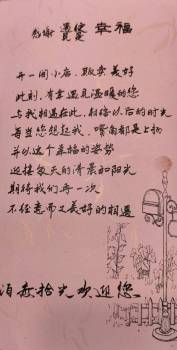 感谢 遇见 幸福
开一间小店，贩卖美好
此刻，有幸遇见温暖的您
与我相遇在此，射线以后的时光
每当您想起我，嘴角都是上扬
并以这个幸福的姿势
迎接每天的清晨和阳光
期待我们再一次
不经意而又美好的相遇
拾光欢迎您